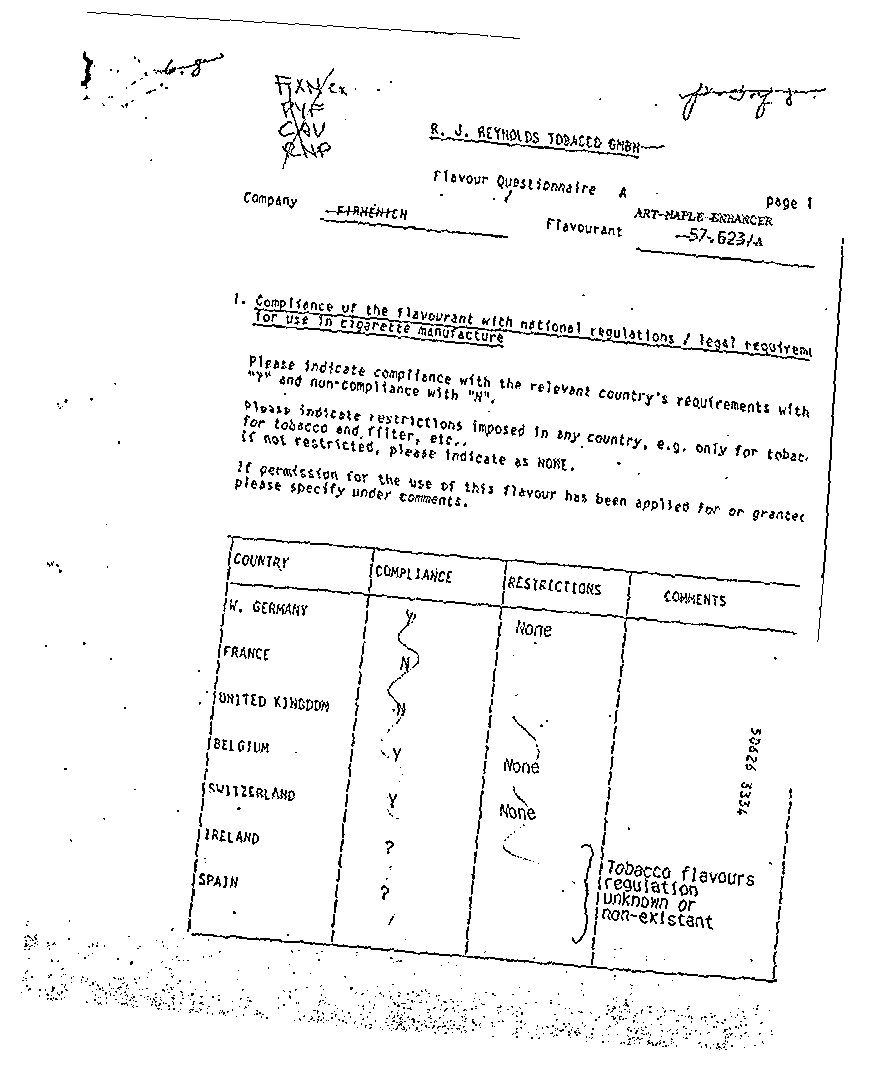 FXN/Ex
PYF
CAV
RNP
R. J. REYNOLDS TOBACCO GMBH
Flavour Questionnaire A
page 1
Company
FIRMENICH
Flavourant
ART-MAPLE-ENHANCER
57.623/A
1. Compliance of the flavourant with national regulations / legal requirem
for use in cigarette manufacture
Please indicate compliance with the relevant country's requirements with
"Y" and non-compliance with "N".
Please indicate restrictions imposed in any country, e.g. only for tobac
for tobacco and filter, etc..
If not restricted, please indicate as NONE.
If permission for the use of this flavour has been applied for or grantec
please specify under comments.
COUNTRY COMPLIANCE RESTRICTIONS COMMENTS
W. GERMANY Y None
FRANCE N
UNITED KINGDOM N
BELGIUM Y None
SWITZERLAND Y None
IRELAND ?
SPAIN ?
Tobacco flavours
regulation
unknown or
non-existant
50626 3334